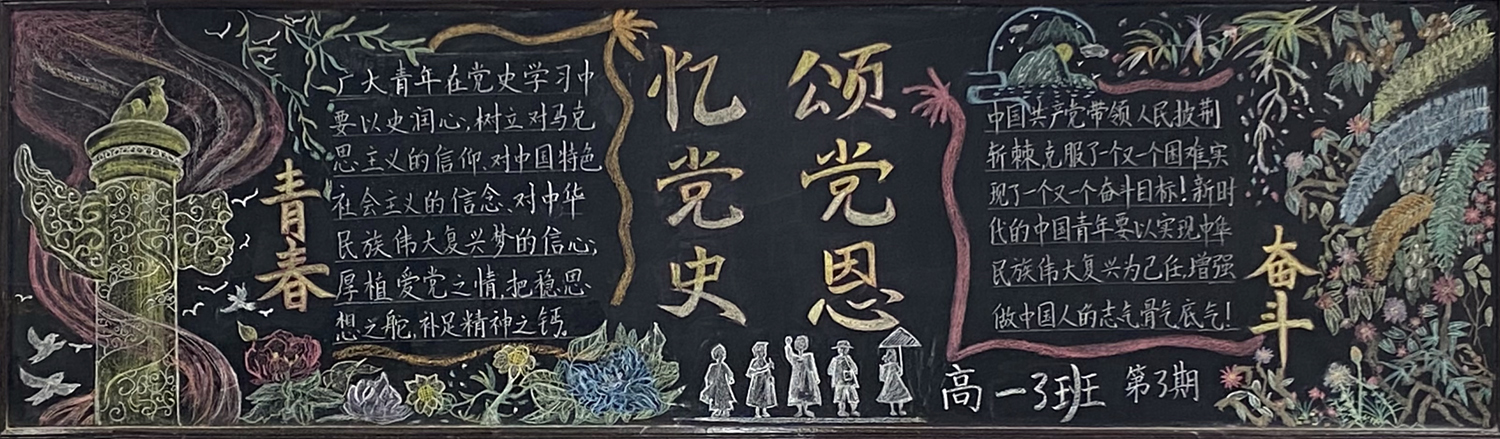 青春
广大青年在党史学习中
要以史润心,树立对马克
思主义的信仰、对中国特色
社会主义的信念、对中华
民族伟大复兴梦的信心;
厚植爱党之情,把稳思
想之舵,补足精神之钙。
忆党史
颂党恩
中国共产党带领人民披荆
斩棘克服了一个又一个困难实
现了一个又一个奋斗目标!新时
代的中国青年要以实现中华
民族伟大复兴为己任,增强
做中国人的志气骨气底气!
奋斗
高一3班 第3期